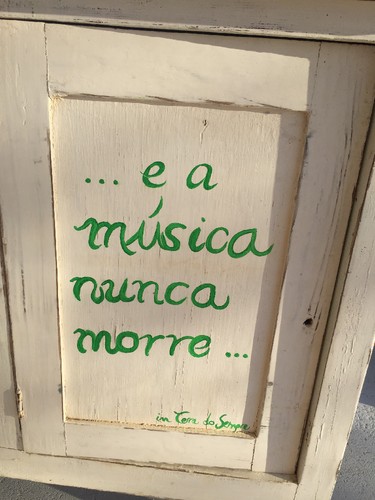 ... e a
música
nunca
morre ...
in Terra do Sempre